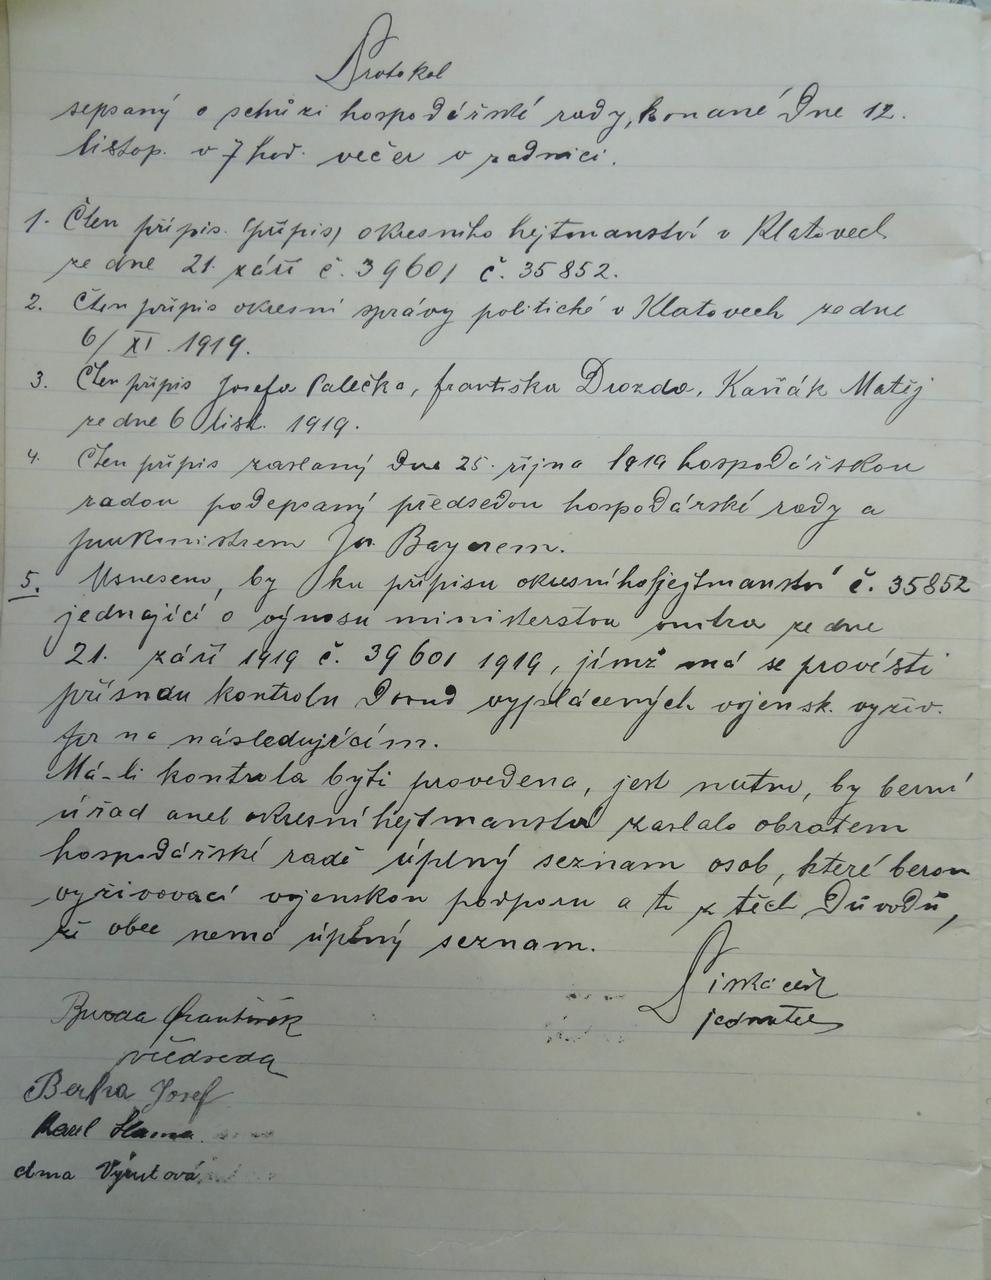 Protokol
sepsaný o schůzi hospodářské rady, konané Dne 12.
listop. v 7 hod. večer v radnici.
1. Čten přípis. (přípis) okresního hejtmanství v Klatovech
ze dne 21. září č. 39601 č. 35852.
2. Čten přípis okresní správy politické v Klatovech ze dne
6/XI. 1919.
3. Čten přípis Josefa Palečka, františka Drozda, Kaňák Matěj
ze dne 6 list. 1919.
4. Čten přípis zaslaný dne 25. října 1919 hospodářskou
radou podepsaný předsedou hospodářské rady a
purkmistrem Bayerem.
5. Usneseno, by ku přípisu okresního hejtmanství č. 35852
jednající o výnosu ministerstva vnitra ze dne
21. září 1919 č. 39601 1919, jímž má se provésti
přísnou kontrolu vyplácených vojensk. vyživ.
na následujícím.
Má-li kontrola býti provedena, jest nutno, by berní
úřad anebo okresní hejtmanství zaslalo obratem
hospodářské radě úplný seznam osob, které berou
vyživovací vojenskou podporu a to z těch Důvodů,
že obec nemá úplný seznam.
jednatel
František
předseda
Berka Josef
Karel Slama